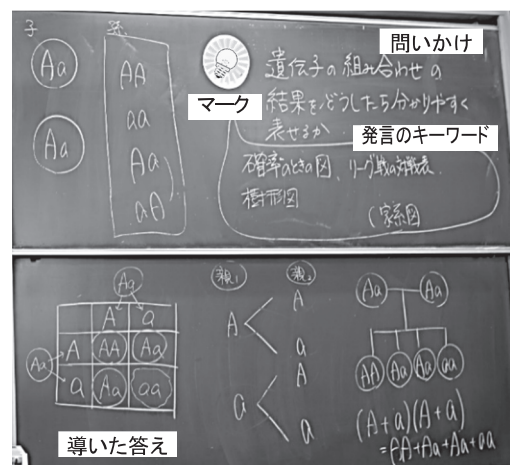 子 孫
Aa
Aa
AA
aa
Aa
aA
問いかけ
マーク
遺伝子の組み合わせの
結果を、どうしたら分かりやすく
表せるか
発言のキーワード
確率のときの図、リーグ戦の対戦表
樹形図
(家系図
Aa
A a
Aa A AA Aa
a Aa aa
導いた答え
親1 親2
A A
a
a A
a
Aa Aa
AA Aa Aa aa
(A+a)(A+a)
=AA+Aa+Aa+aa